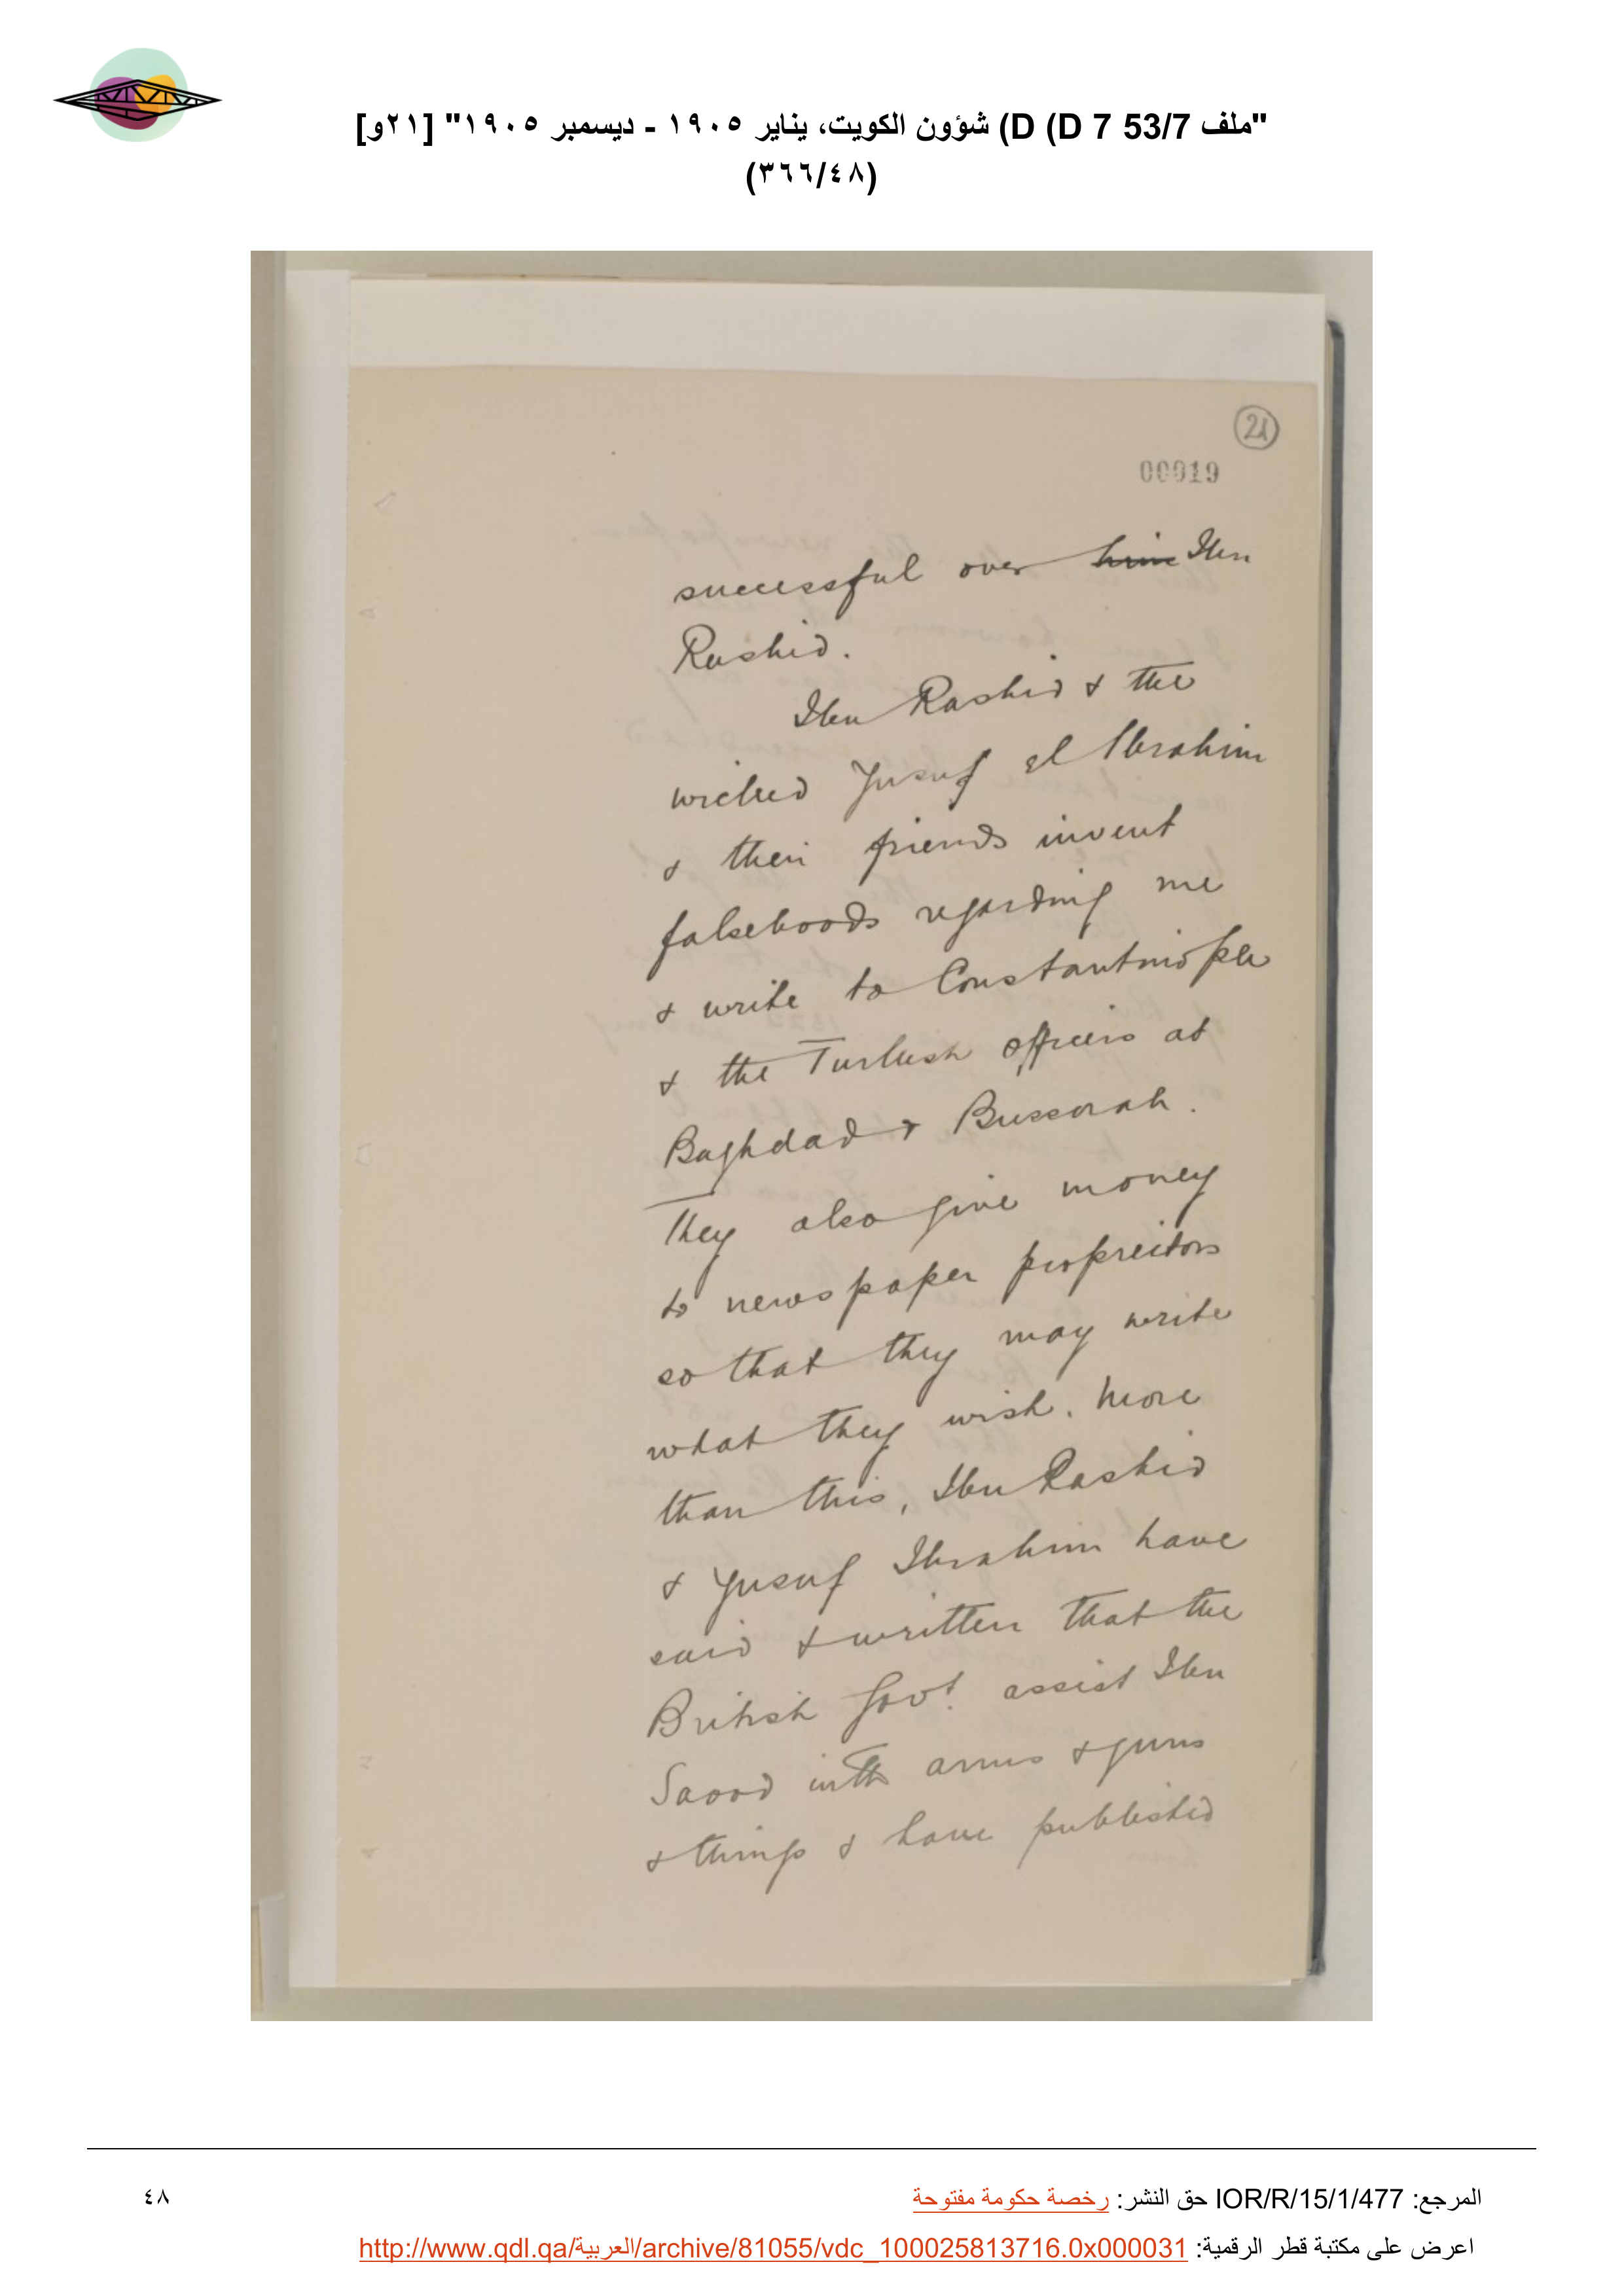 "ملف 53/7 D 7) D) شؤون الكويت، يناير ١٩٠٥ - ديسمبر ١٩٠٥" [٢١و]
(٣٦٦/٤٨)
21
00019
successful over him Ibn
Rashid.
Ibn Rashid & the
wicked Yusuf el Ibrahim
& their friends invent
falsehoods regarding me
& write to Constantinople
& the Turkish officers at
Baghdad & Bussorah.
They also give money
to newspaper proprietors
so that they may write
what they wish. More
than this, Ibn Rashid
& Yusuf Ibrahim have
said & written that the
British Govt. assist Ibn
Saood with arms & guns
& things & have published
المرجع: IOR/R/15/1/477 حق النشر: رخصة حكومة مفتوحة
٤٨
اعرض على مكتبة قطر الرقمية: http://www.qdl.qa/العربية/archive/81055/vdc_100025813716.0x000031